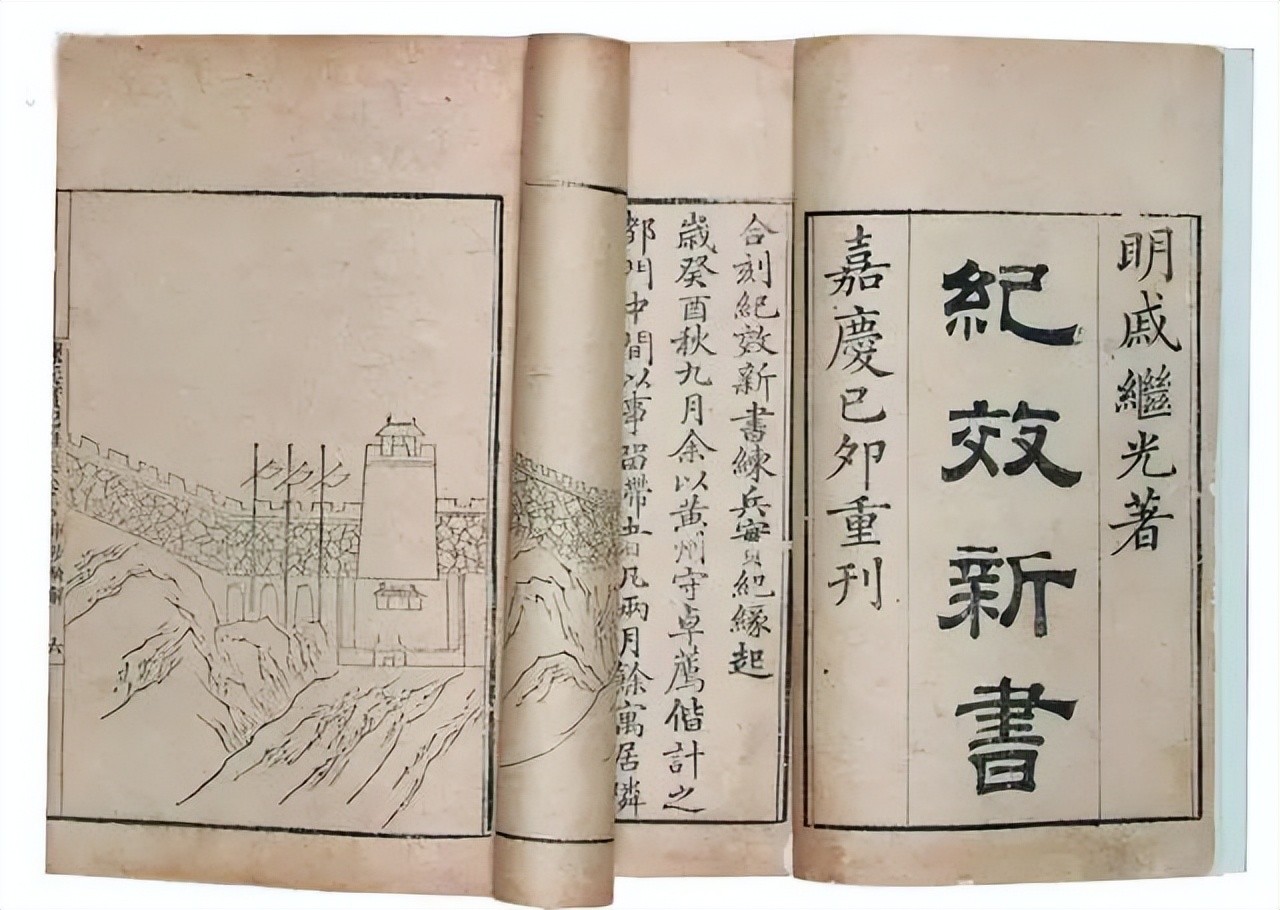 明戚繼光著
紀效新書
嘉慶己卯重刊
合刻紀效新書練兵實紀緣起
歲癸酉秋九月余以黃州守卓薦偕計之
都門中間以事畱滯止凡兩月餘寓居隣
六